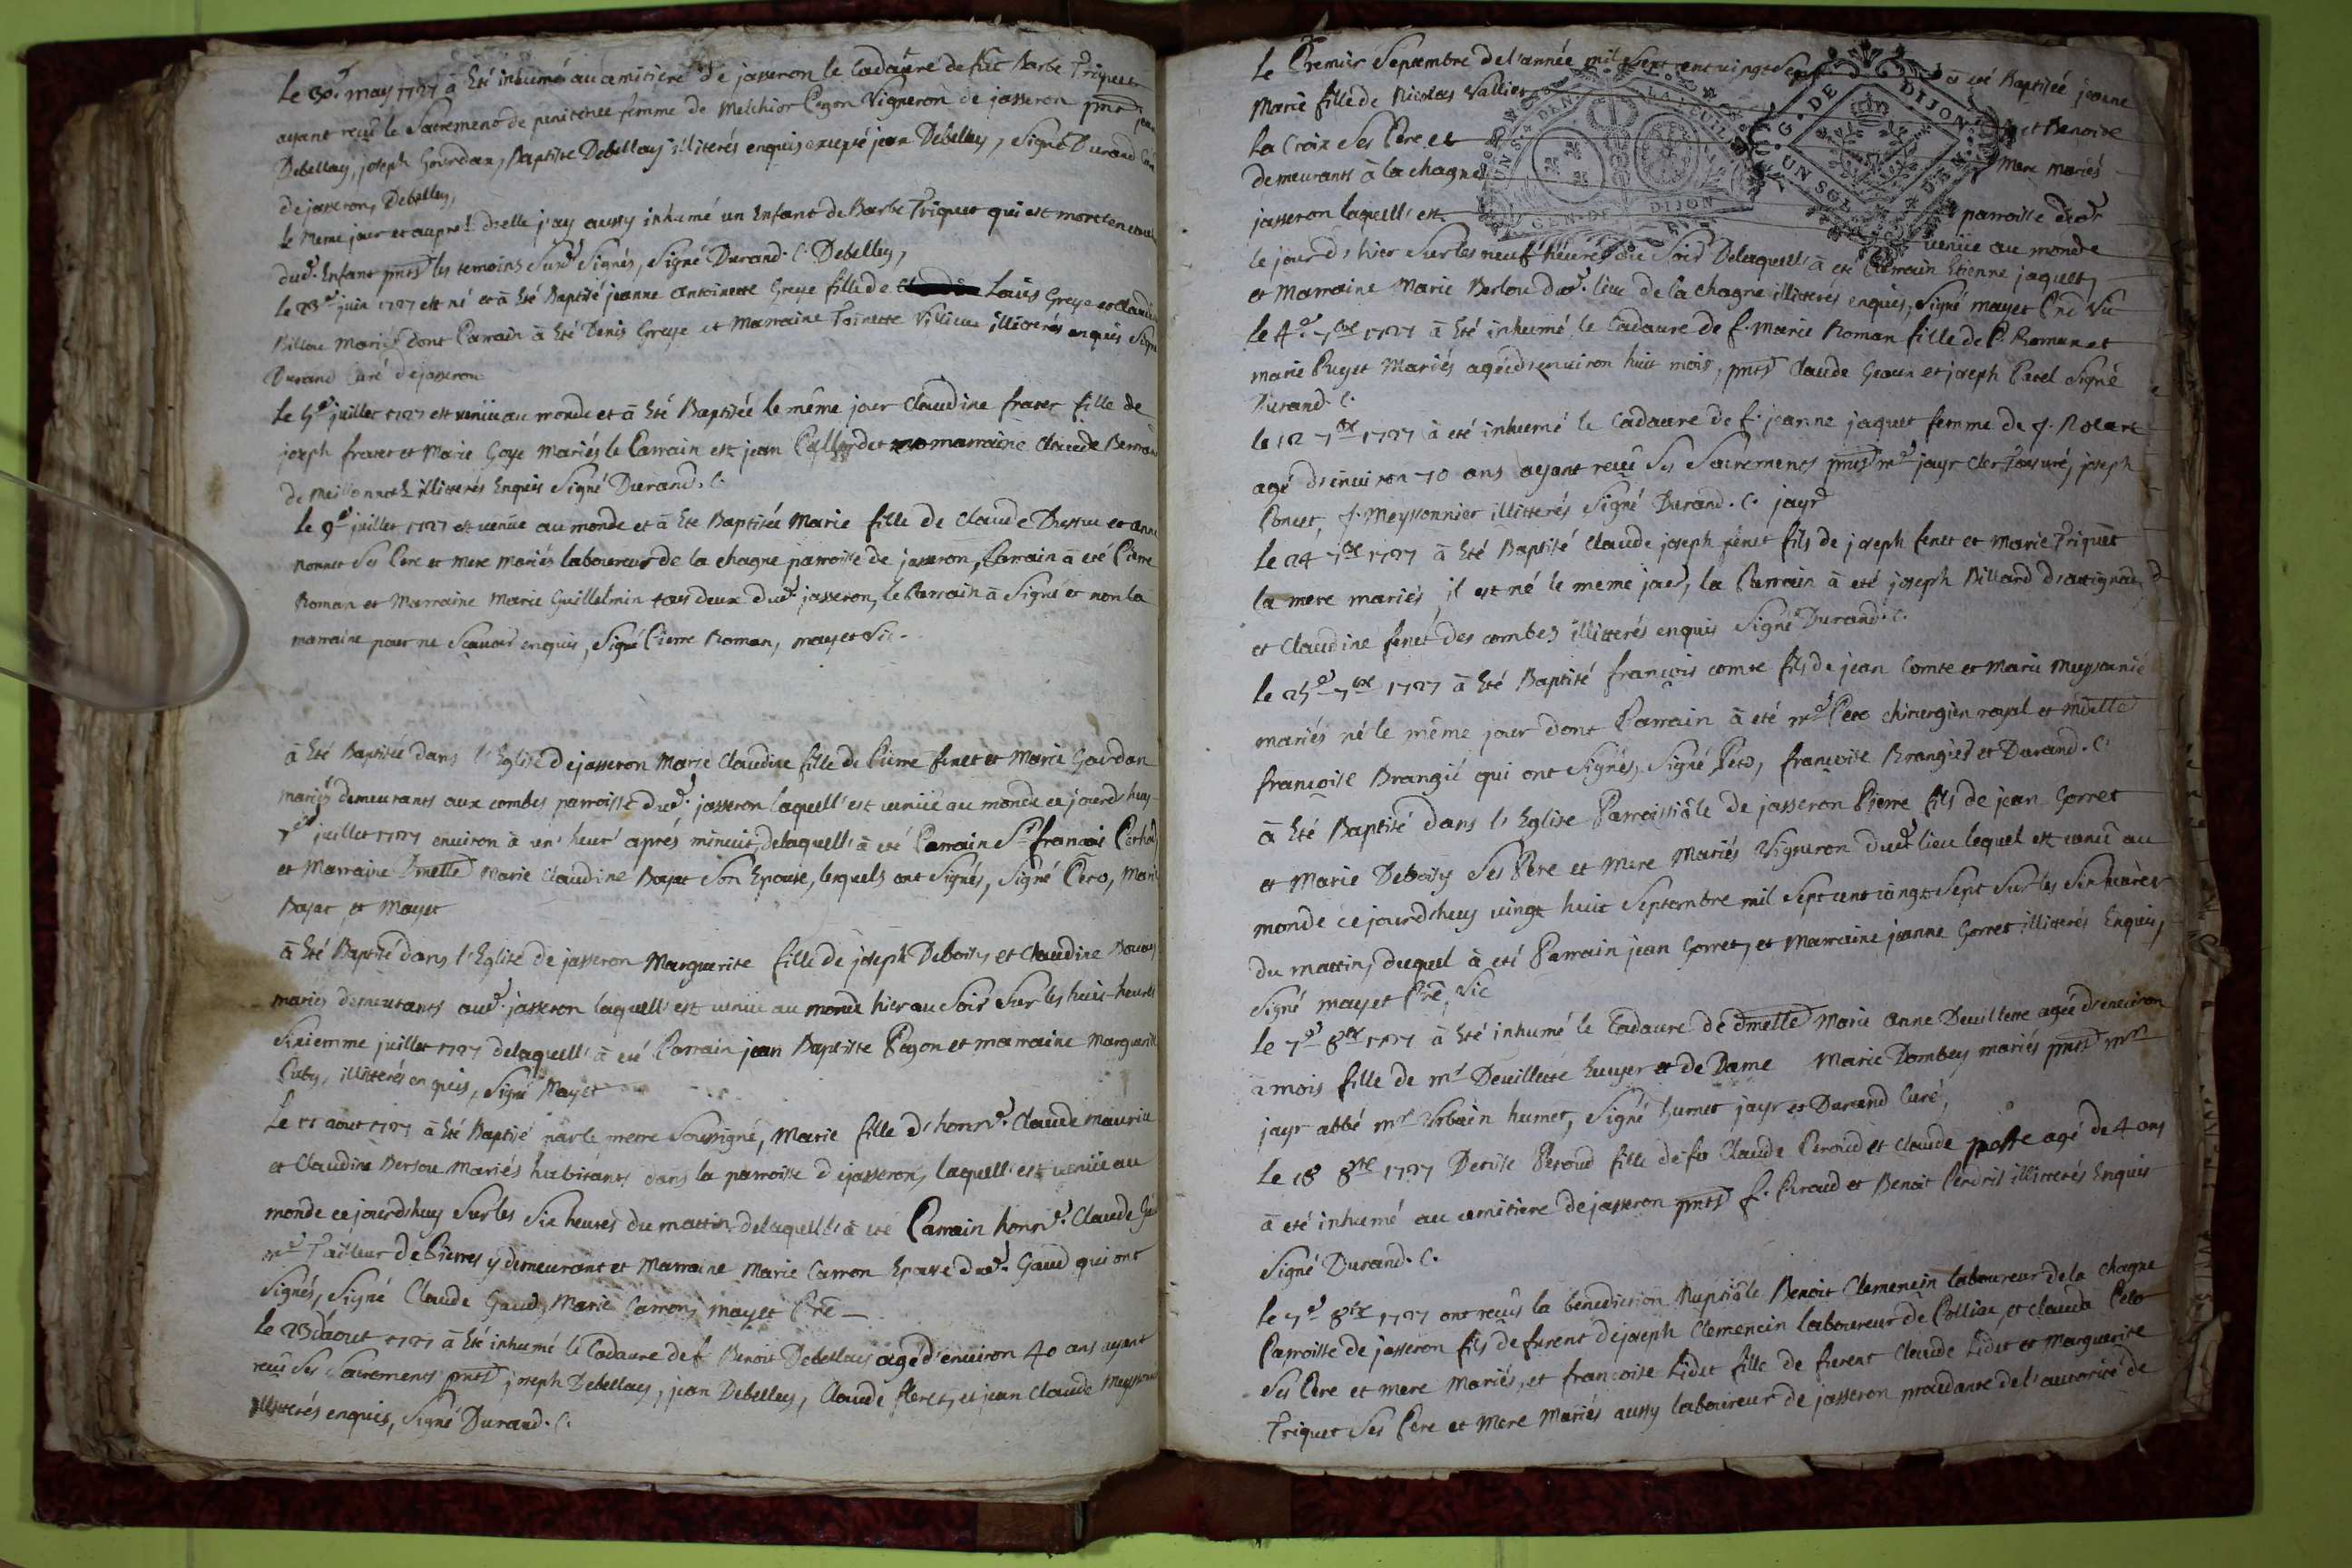 Le 30.e may 1727 à Eté inhumé au cimitiere de jasseron le Cadavre de fut Barbe Triquet
ayant reçu le Sacrement de penitence femme de Melchior Pegon Vigneron de jasseron pnts jean
Debellay, joseph Gourdan, Baptiste Debellay illiterés enquis excepté jean Debellay, Signé Durand Curé
de jasseron, Debelley,
le Meme jour et auprés d'elle j'ay aussy inhumé un Enfant de Barbe Triquet qui est mort
dud. Enfant pnts les temoins Susd Signés, Signé Durand. C. Debelley,
Le 23e juin 1727 est né et à Eté Baptisé jeanne Antoinette Greye fille de Louis Greye et Claudine
Billou Mariés dont Parrain à Eté Denis Greye et Marraine Toinette Villieu illiterés enquis Signé
Durand Curé de jasseron
Le 5e juillet 1727 est veniie au monde et à Eté Baptisée le même jour Claudine frater fille de
joseph frater et Marie Goye Mariés le Parrain est jean et marraine Claude
de Meillonnas illitterés Enquis Signé Durand. C.
Le 9e juillet 1727 est venüe au monde et à Ete Baptisée Marie fille de Claude et anne
nonnet Ses Pere et Mere Mariés laboureur de la chagne parroisse de jasseron, Parrain à eté Pierre
Roman et Marraine Marie Guillelmin tous deux dud. jasseron, le Parrain à Signé et non la
marraine pour ne Scavoir enquis, Signé Pierre Roman, mayet Vic.
à Eté Baptisée dans l'Eglise de jasseron Marie Claudine fille de Pierre fenet et Marie Gourdan
mariés demeurants aux combes parroisse dud. jasseron laquell'est veniie au monde ce jourd'huy
juillet 1727 environ à un'heur' aprés minuit, delaquell'à eté Parrain Sr francois
et Marraine Dmelle Marie Claudine Bojat Son Epouse, lesquels ont Signés, Signé Pero, Marie
Bojat et Mayet
à Eté Baptisé dans l'Eglise de jasseron Marguerite fille de joseph Deboisy et Claudine
mariés demeurants aud. jasseron laquell'est veniie au monde hier au Soir Sur les huit heures
Sixiemme juillet 1727 delaquell'à eté Parrain jean Baptiste Pegon et marraine Marguerite
illitterés enquis, Signé Mayet
Le 11 aout 1727 à Eté Baptisé par le pretre Soussigné, Marie fille d'honn.e Claude Mauriu
et Claudine Bersou Mariés habitants dans la parroisse de jasseron, laquell'est veniie au
monde ce jourd'huy Sur les Six heures du mattin delaquell'à eté Parrain honn.e Claude
me Tailleur de Pierres y demeurant et Marraine Marie Carron Epouse dud. Gaud qui ont
Signés, Signé Claude Gaud, Marie Carron, mayet Ptre
Le 23 d'aout 1727 à Eté inhumé le Cadavre de f. Benoit Debellay agé d'environ 40 ans ayant
reçu Ses Sacrements pnts joseph Debellay, jean Debelley, Claude feret, et jean Claude
illitterés enquis, Signé Durand. C.
Le Premier Septembre de l'année mil Sept cent vingt Sept à eté Baptisée jeanne
Marie fille de Nicolas Vallier et Benoite
La Croix Ses Pere et Mere mariés
demeurants à la chagne parroisse de
jasseron laquell'est veniie au monde
le jour d'hier Sur les neuf heures du Soir Delaquell'à eté Parrain Etienne jaquet,
et Marraine Marie Berlou dud. lieu de la chagne illitterés enquis, Signé mayet Vic
Le 4e 7bre 1727 à Eté inhumé le Cadavre de f. Marie Roman fille de P. Roman et
marie Puget Mariés agée d'environ huit mois, pnts Claude et joseph Pavel Signé
Durand. C.
le 12 7bre 1727 à eté inhumé le Cadavre de f. jeanne jaquet femme de
agé d'environ 70 ans ayant recu Ses Sacrements pnts me jayr Clerc Tonsuré, joseph
Poncet, f. Meyssonnier illitterés Signé Durand. C. jayr
Le 24 7bre 1727 à Eté Baptisé Claude joseph fenet fils de joseph fenet et Marie Triquet
la mere mariés il est né le meme jour, la Parrain à eté joseph Billard
et Claudine fenet des combes illitterés enquis Signé Durand. C.
le 25e 7bre 1727 à Eté Baptisé francois comte fils de jean Comte et Marie
mariés né le même jour dont Parrain à eté me Pero chirurgien royal et mdelle
francoise Brangié qui ont Signés, Signé Pero, francoise Brangier et Durand. C.
à Eté Baptisé dans l'Eglise Parroissiâle de jasseron Pierre fils de jean Gorret
et Marie Deboisy Ses Pere et Mere Mariés Vigneron dud. lieu lequel est venû au
monde ce jourd'huy vingt huit Septembre mil Sept cent vingt Sept Sur les Six heures
du mattin, duquel à eté Parrain jean Gorret, et Marraine jeanne Gorret illitterés Enquis,
Signé mayet Ptre, Vic
Le 7e 8bre 1727 à Eté inhumé le Cadavre de dmelle Marie Anne Devillette agée d'environ
2 mois fille de mr Devillette Ecuyer et de Dame Marie Dombey mariés pnts mr
jayr abbé mr Urbain humet, Signé humet jayr et Durand Curé,
Le 18 8bre 1727 Denise Peroud fille de fû Claude Peroud et Claude poste agé de 4 ans
à eté inhumé au cemitiere de jasseron pnts f. Peraud et Benoit Perdrit illitterés Enquis
Signé Durand. C.
le 7e 8bre 1727 ont recus la benediction Nuptiâle Benoit Clemencin laboureur de la chagne
Parroisse de jasseron fils de furent de joseph Clemencin laboureur de et Clauda Pelo
Ses Pere et mere Mariés, et francoise Lidet fille de furent Claude Lidet et Marguerite
Triquet Ses Pere et Mere Mariés aussy laboureur de jasseron procedante de l'autorité de
G. DE DIJON
UN SOL
GEN. DE DIJON